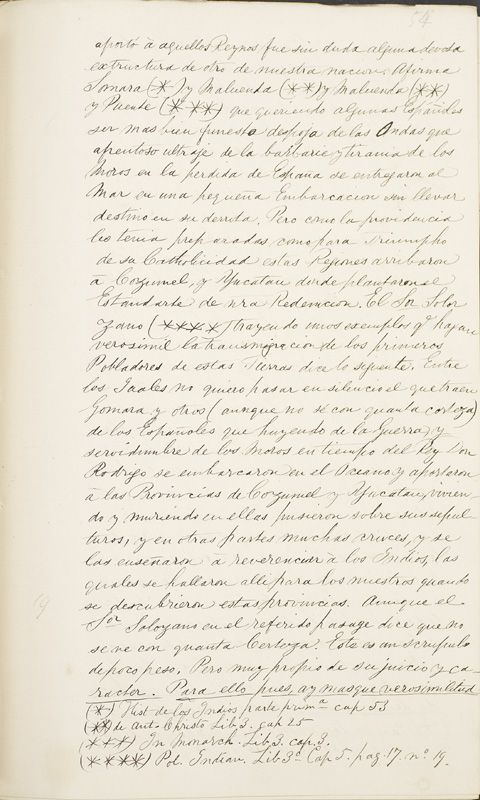 54
aportó à aquellos Reynos fue sin duda alguna devota
extructura de otro de nuestra nacion. Afirma
Gomara (*) y Maluenda (**) y Maluenda (**)
y Puente (***) que queriendo algunos Españoles
ser mas bien funesto despojo de las Ondas que
afrentoso ultraje de la barbarie y tirania de los
Moros en la perdida de España se entregaron al
Mar en una pequeña Embarcacion sin llevar
destino en su derrota. Pero como la providencia
les tenia preparadas como para Triumpho
de su Catholicidad estas Regiones arribaron
à Cozumel, y Yucatan donde plantaron el
Estandarte de nra Redemcion. El Sor Solor
zano (****) trayendo unos exemplos q. hagan
verosimil la transmigracion de los primeros
Pobladores de estas Tierras dice lo siguente. Entre
los quales no quiero pasar en silencio el que traen
Gomara y otros (aunque no sé con quanta certeza)
de los Españoles que huyendo de la Guerra, y
servidumbre de los Moros en tiempo del Rey Don
Rodrigo se embarcaron en el Oceano y aportaron
a las Provincias de Cozumel y Yucatan, vivien-
do y muriendo en ellas pusieron sobre sus sepul
turos, y en otras partes muchas cruces, y se
las enseñaron à reverenciar à los Indios, las
quales se hallaron alli para los nuestros quando
se descubrieron estas provincias. Aunque el
19
Sor Solorzano en el referido pasage dice que no
se ve con quanta Certeza. Este es un scrupulo
de poco peso. Pero muy propio de su juicio y ca-
racter. Para ello pues, ay mas que verosimilitud
(*) Hist de los Indios parte prima cap 53
(**) de Ant. Christo Lib 3. cap 25
(***) In Monarch. Lib 3. cap. 3.
(****) Pol. Indian. Lib 3o Cap 5. pag. 17. no. 19.